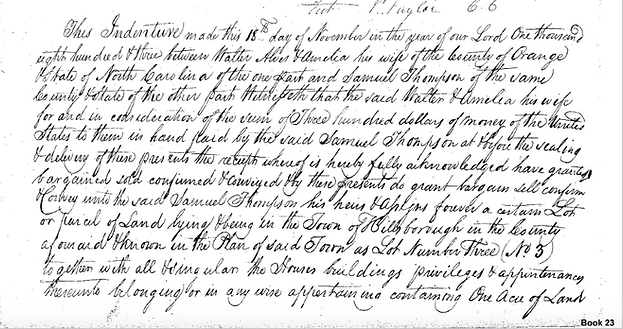 Test J. Taylor C. C
This Indenture made this 18th day of November in the year of our Lord One thousand
eight hundred & three between Walter Alves & Amelia his wife of the County of Orange
& State of North Carolina of the one part and Samuel Thompson of the same
County & State of the other part Witnesseth that the said Walter & Amelia his wife
for and in consideration of the sum of Three hundred dollars of money of the United
States to them in hand paid by the said Samuel Thompson at & before the sealing
& delivery of these presents the receipt whereof is hereby fully acknowledged have granted
bargained sold confirmed & Conveyed & by these presents do grant bargain sell confirm
& Convey unto the said Samuel Thompson his heirs & assigns forever a certain Lot
or parcel of Land lying & being in the Town of Hillsborough in the County
aforesaid & known in the Plan of said Town as Lot Number Three (No 3)
together with all & singular the Houses buildings privileges & appurtenances
thereunto belonging or in any wise appertaining containing One Acre of Land
Book 23